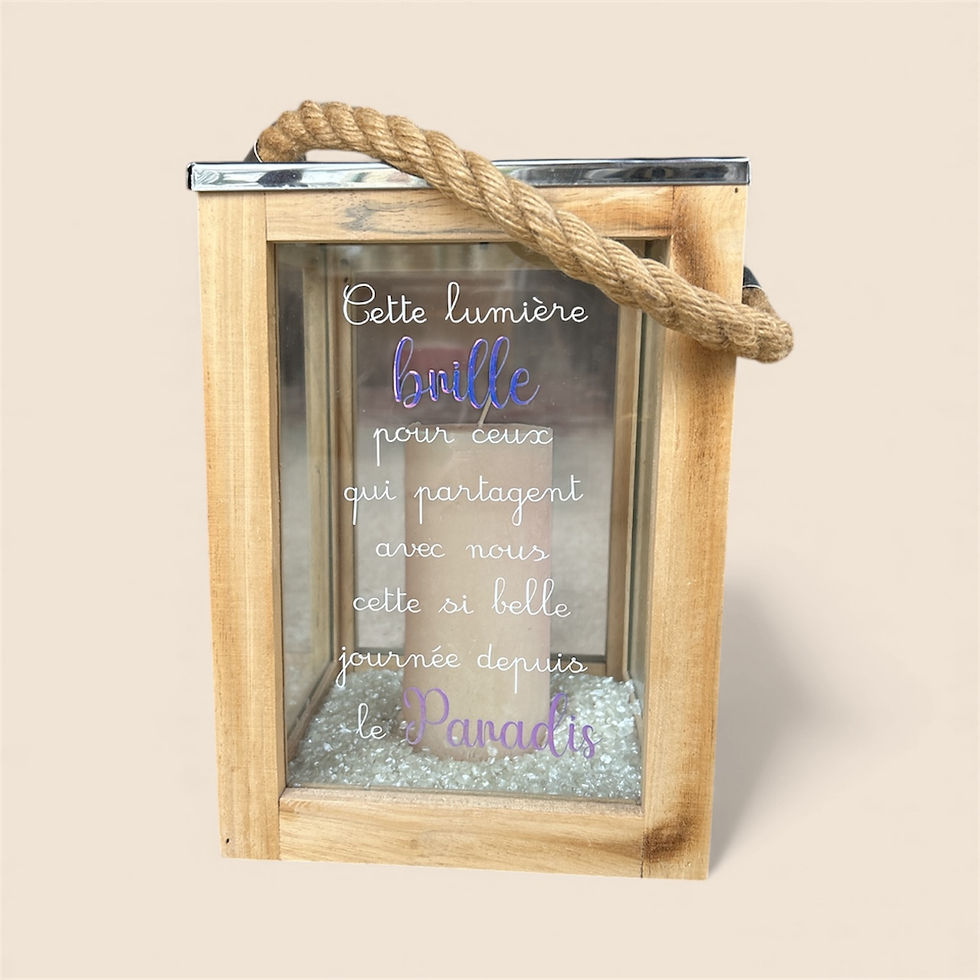 Cette lumière
brille
pour ceux
qui partagent
avec nous
cette si belle
journée depuis
le Paradis